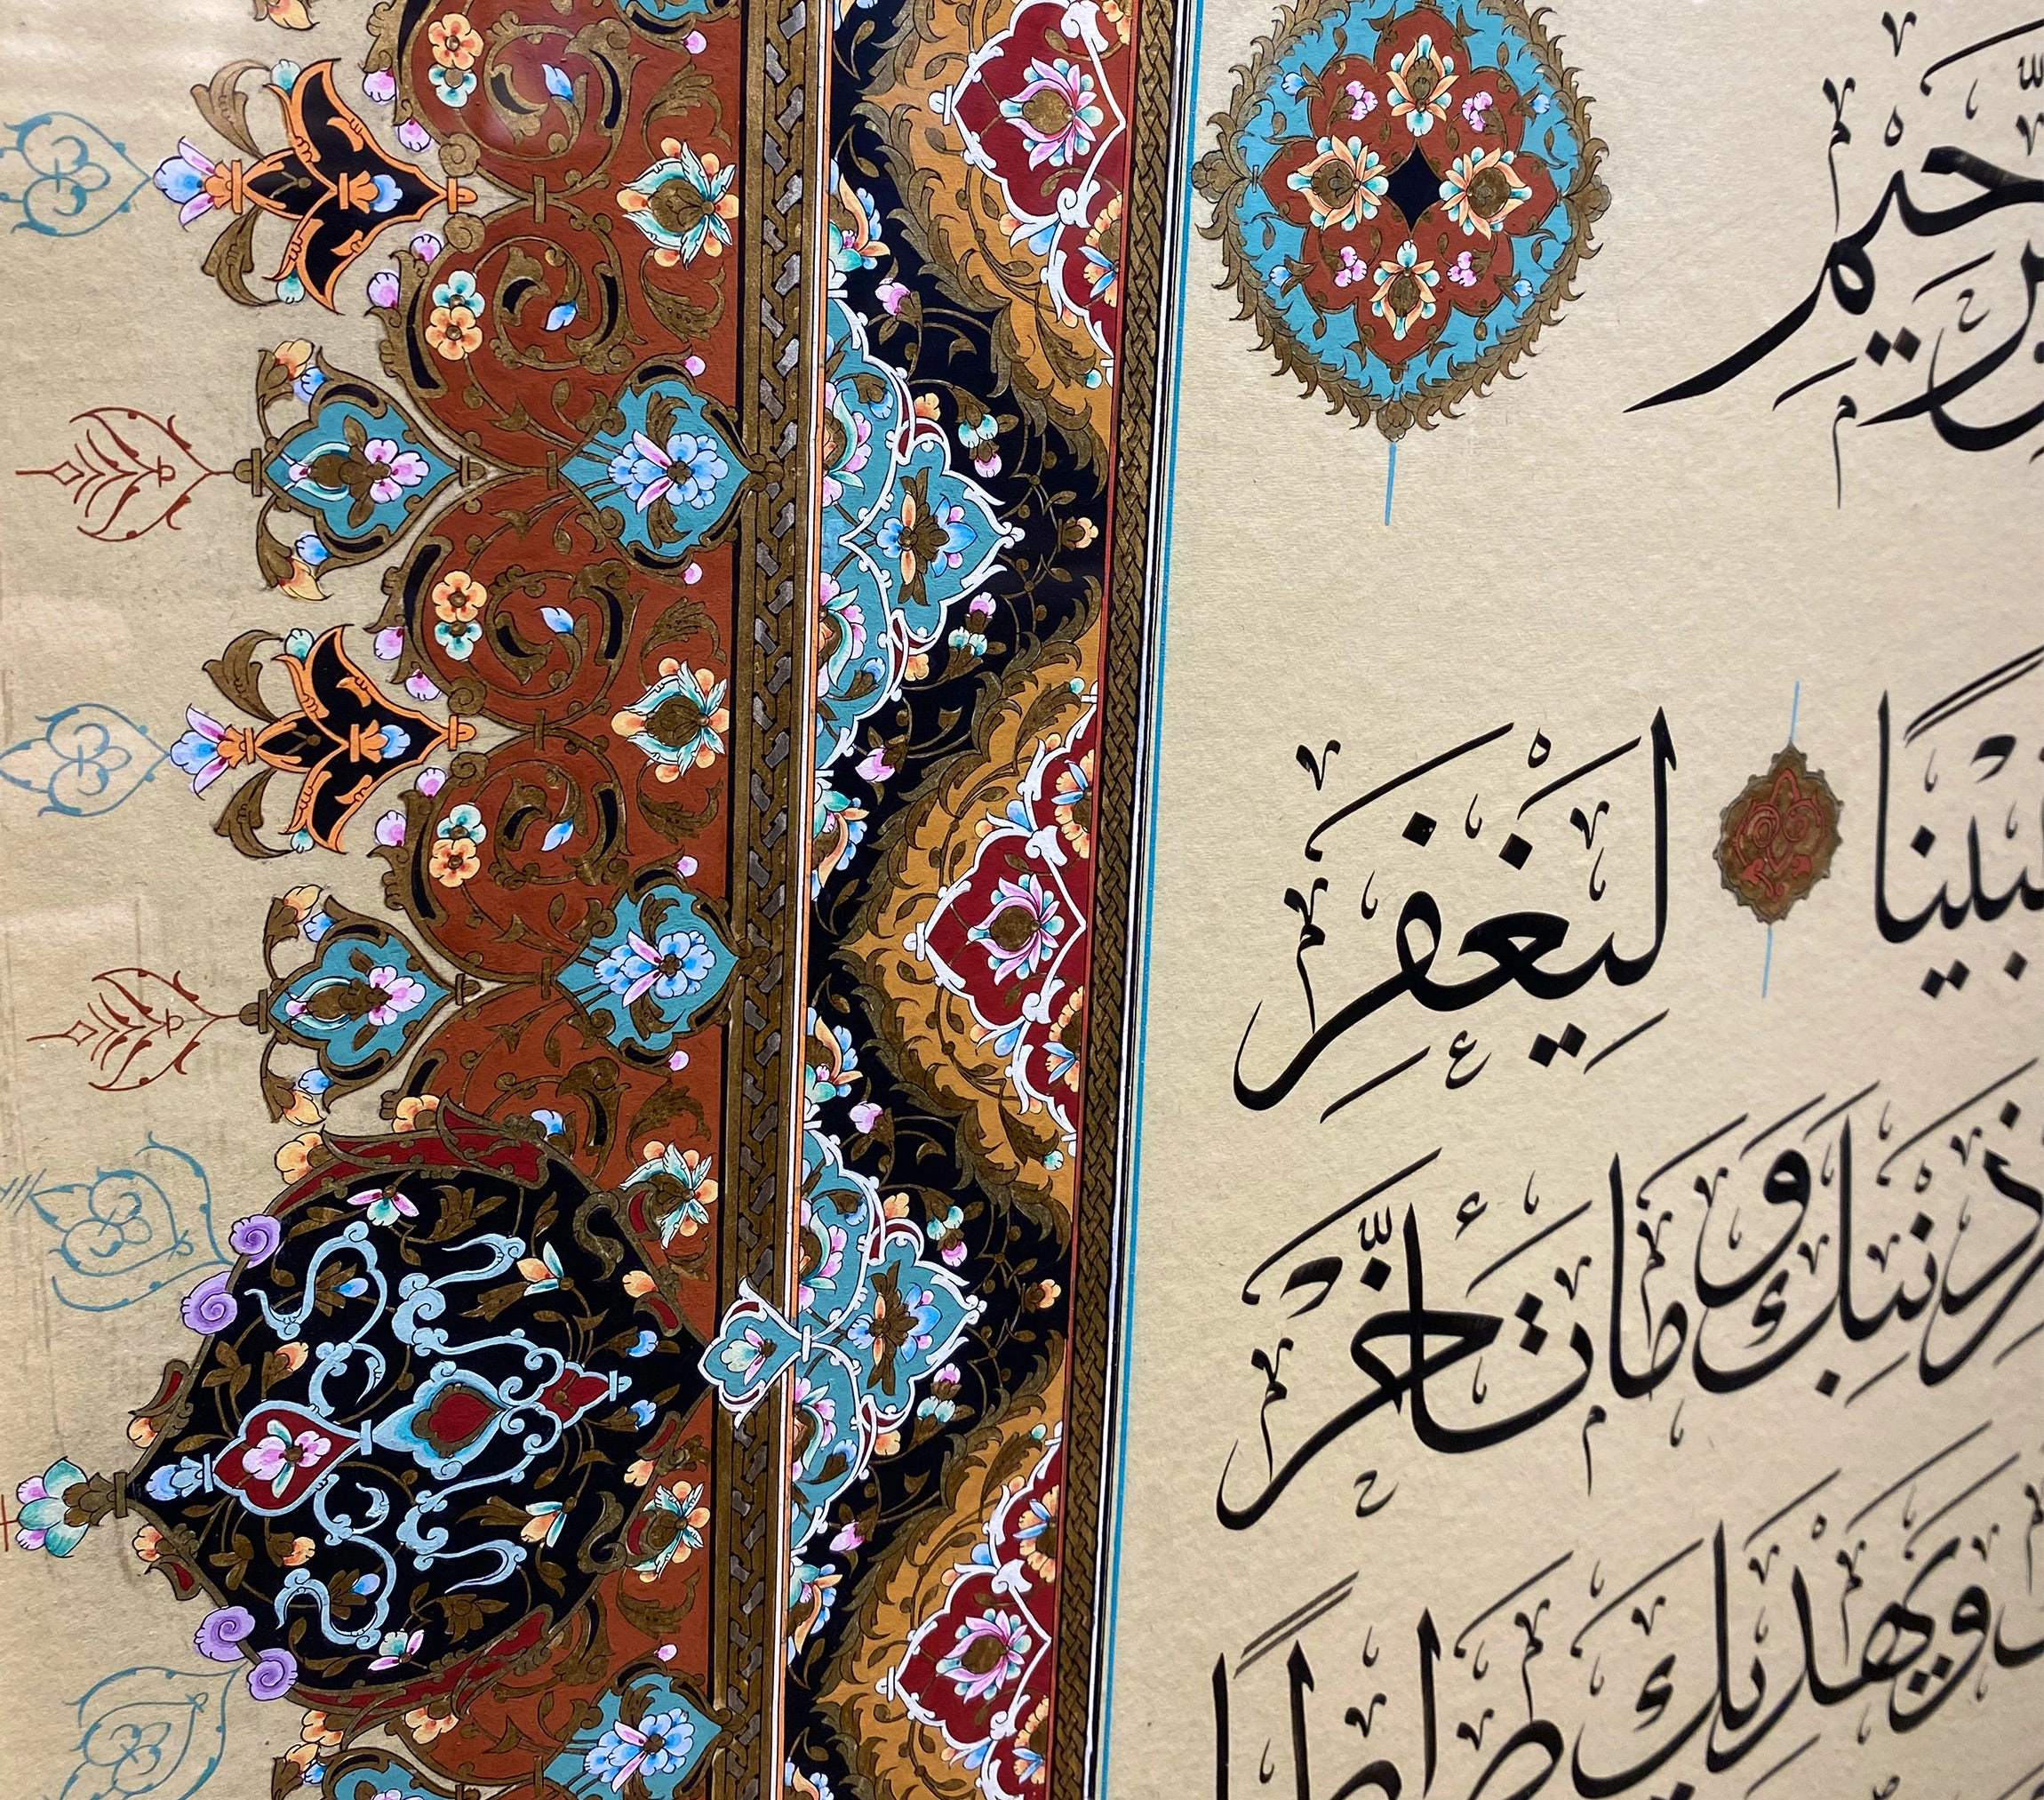 رَّحِيمِ
مُبِينًا لِيَغْفِرَ
ذَنْبِكَ وَمَا تَأَخَّرَ
وَيَهْدِيَكَ صِرَاطًا